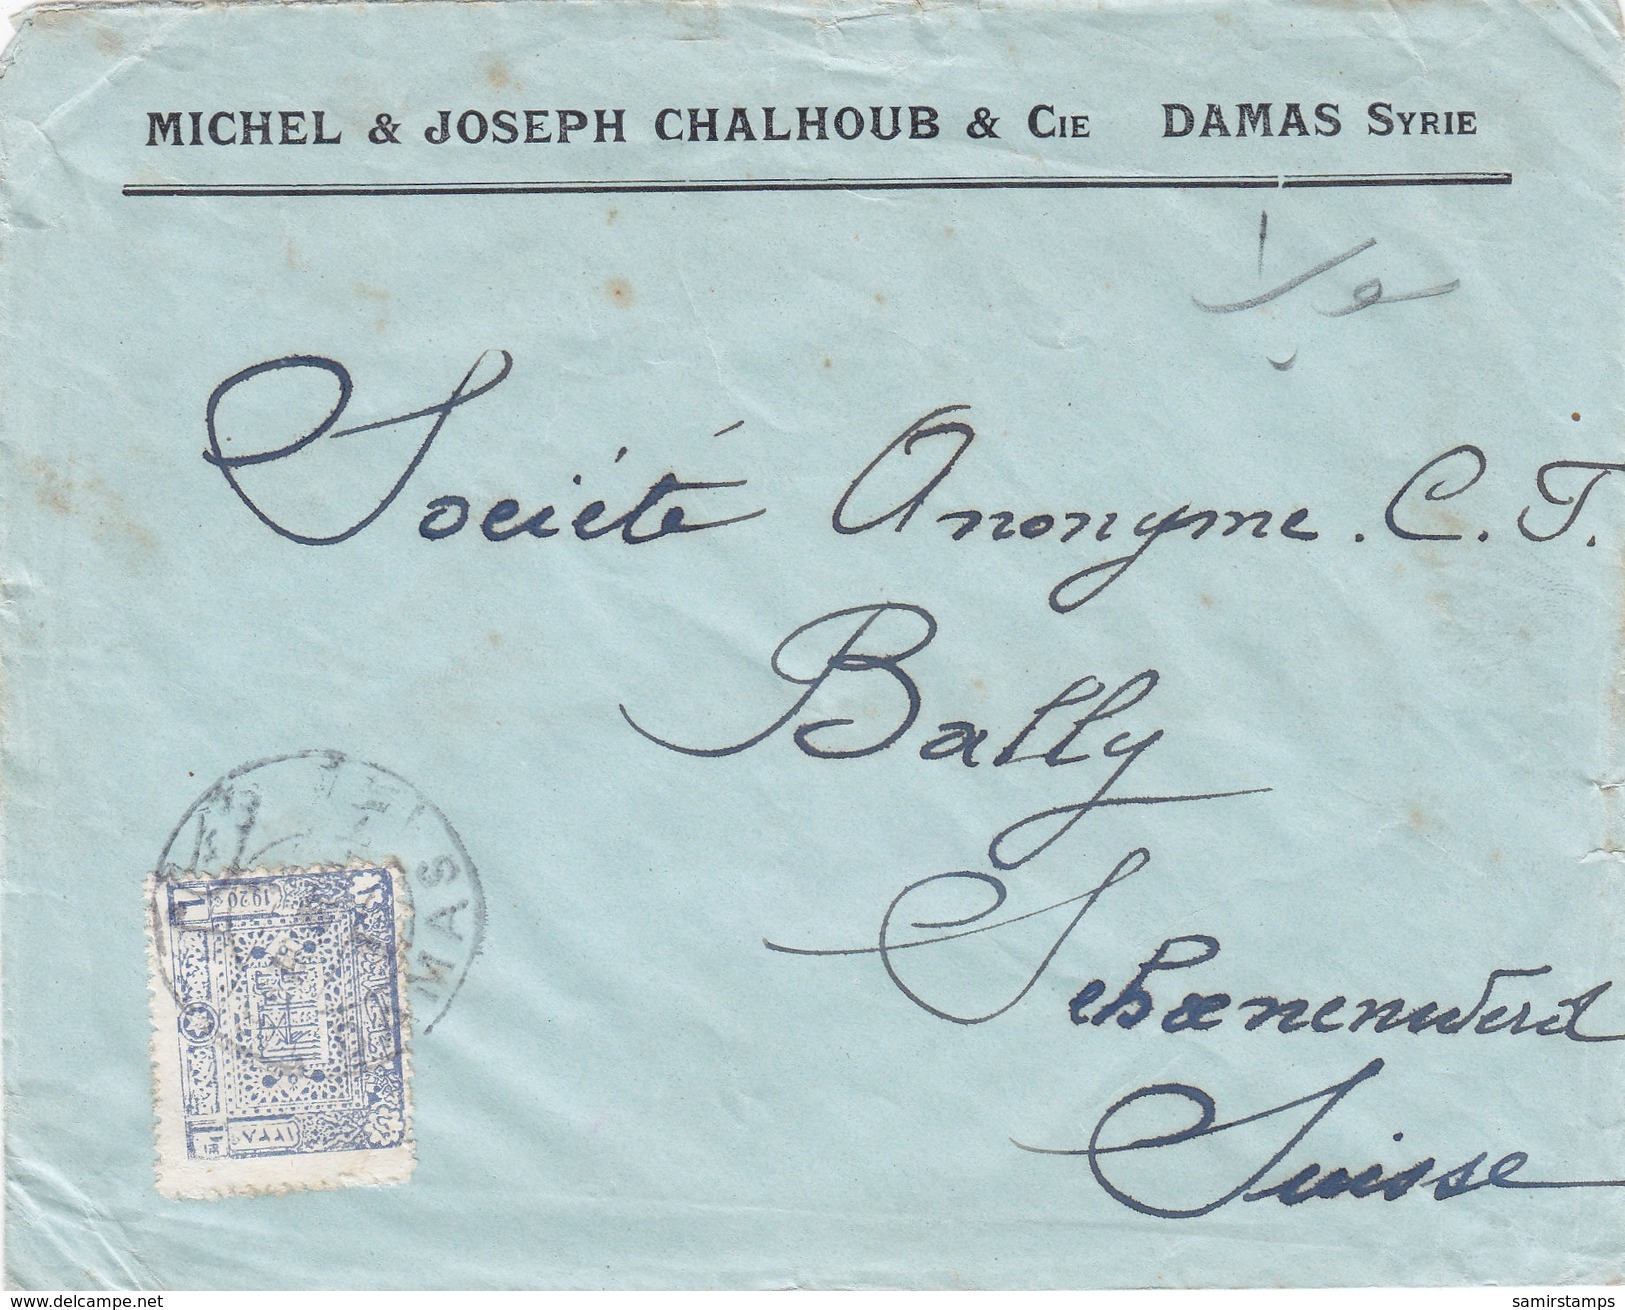 MICHEL & JOSEPH CHALHOUB & CIE DAMAS SYRIE
سويسرا
Société Anonyme. C. F.
Bally
Schoenenwerd
Suisse
MAS
1920
١٣٣٨
www.delcampe.net
samirstamps